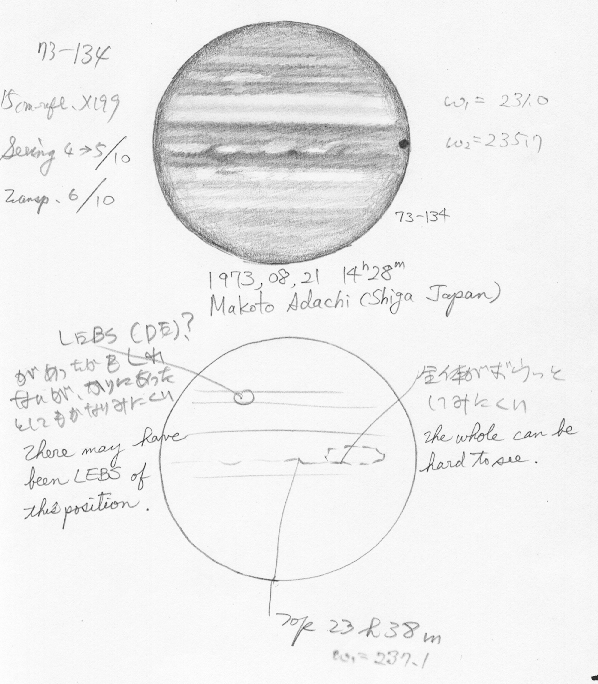 73-134
15cm refl. ×199
Seeing 4→5/10
Transp. 6/10
ω1 = 231.0
ω2 = 235.7
73-134
1973, 08, 21 14h28m
Makoto Adachi (Shiga Japan)
LEBS (DE)?
があったかもしれ
ないが、かりにあった
としてもかなりみにくい
There may have
been LEBS of
this position.
全体がぼうっと
してみにくい
The whole can be
hard to see.
23h 38m
ω1 = 237.1